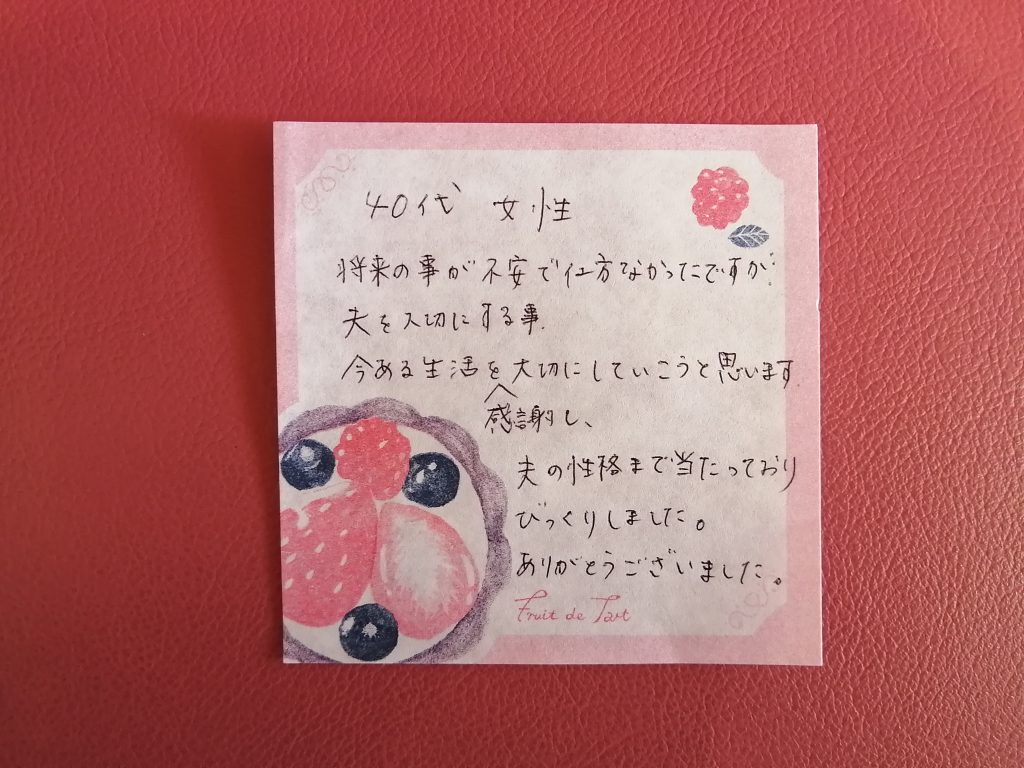 40代 女性
将来の事が不安で仕方なかったですが、
夫を大切にする事、
今ある生活を大切にしていこうと思います
感謝し、
夫の性格まで当たっており
びっくりしました。
ありがとうございました。
Fruit de Tart